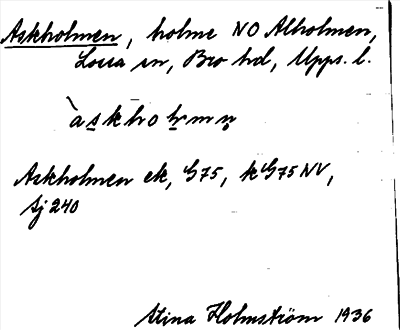 Askholmen, holme NO Alholmen,
Lossa sn, Bro hd, Upps. l.
àskhoḷmn̥
Askholmen ek, G75, k G75 NV,
Sj 240
Stina Holmström 1936